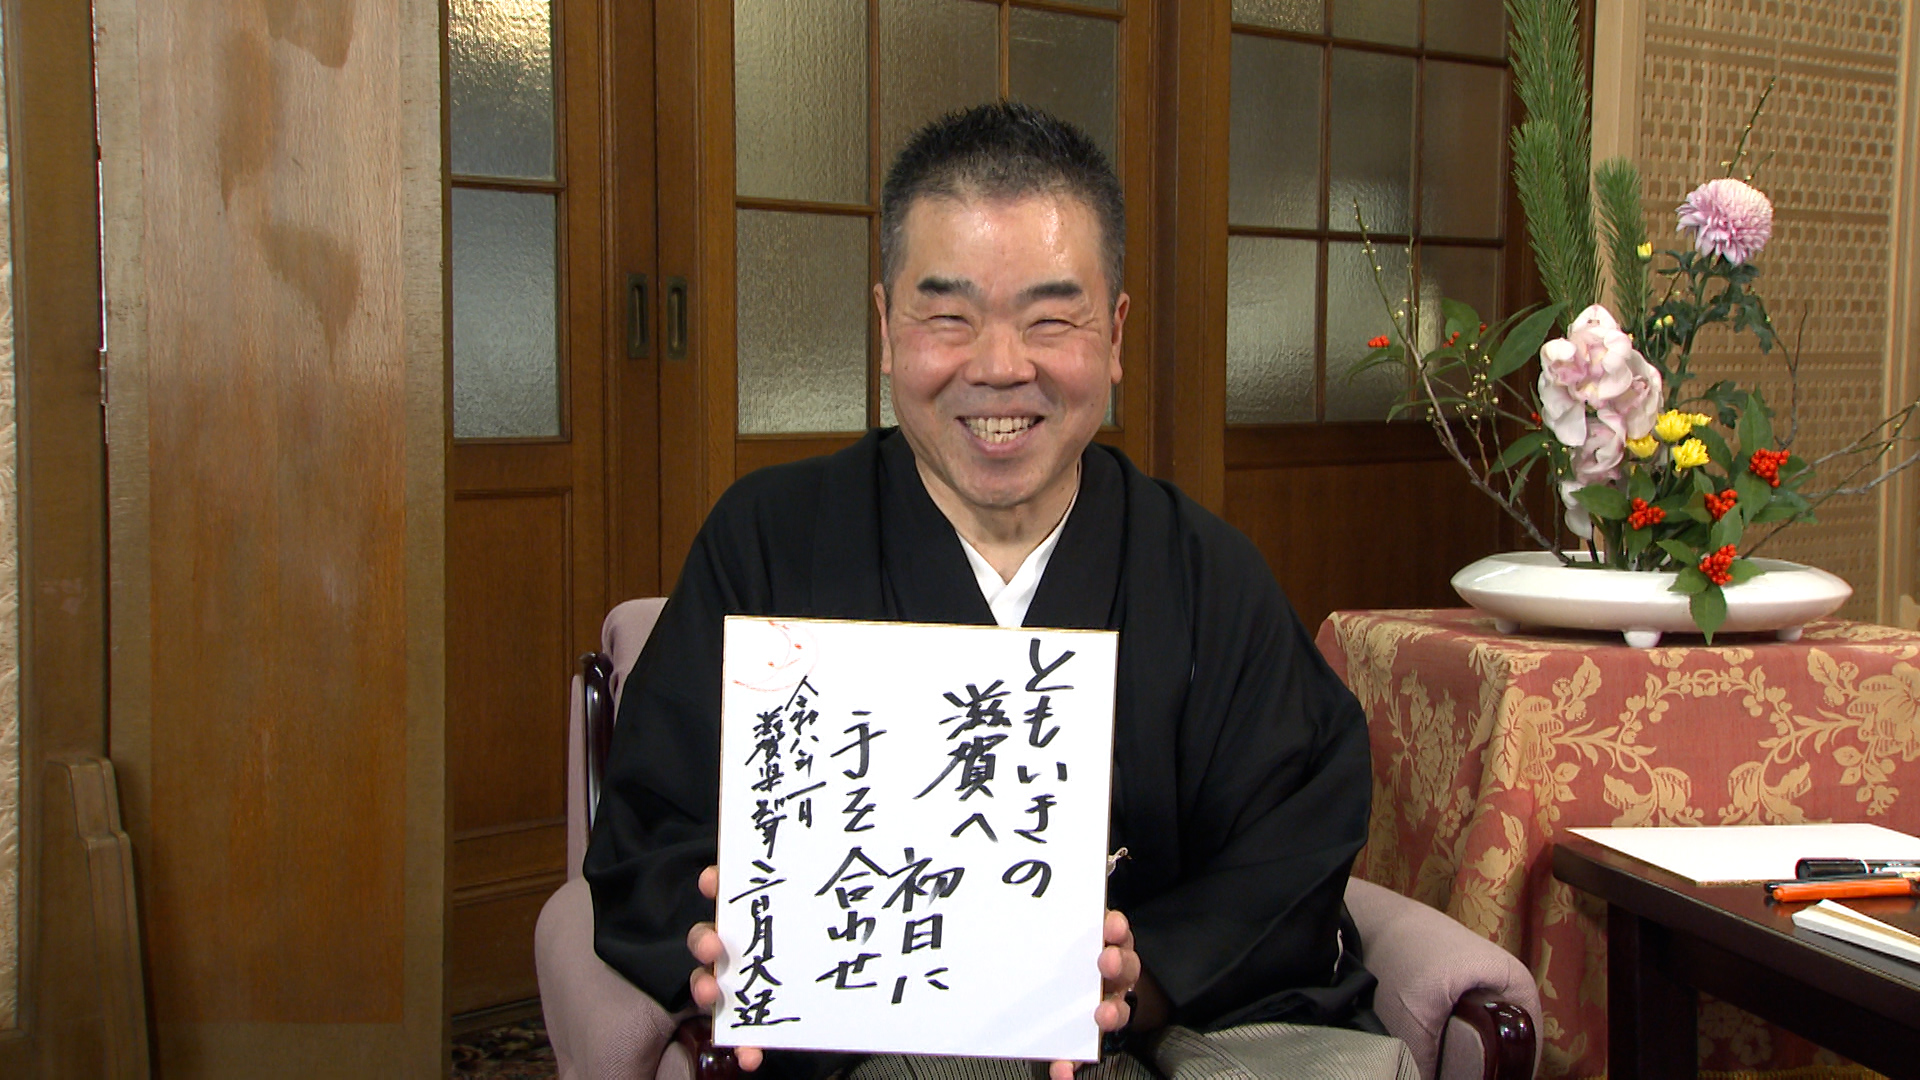 ともいきの
滋賀へ
初日に
手を合わせ
令和八年一月
滋賀県知事 三日月大造